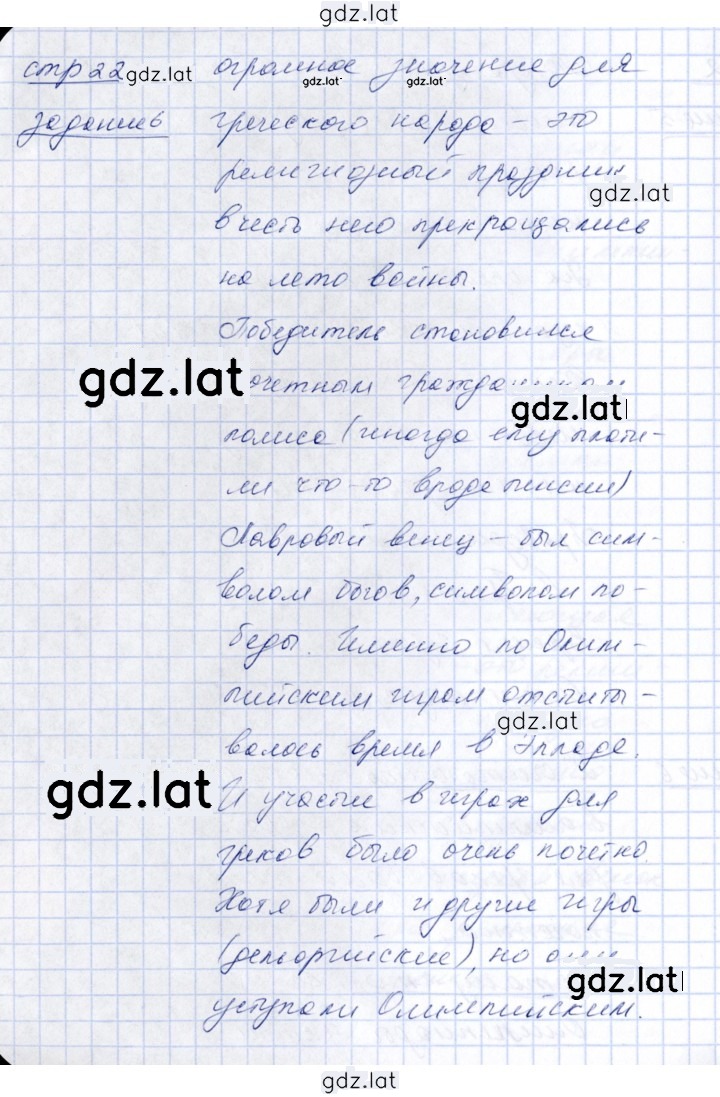 gdz.lat
стр 22 gdz.lat огромное значение для
gdz.lat gdz.lat
задание 6 греческого народа – это
религиозный праздник
gdz.lat
в честь него прекращались
на лето войны.
Победитель становился
gdz.lat почетным гражданином
gdz.lat
полиса (иногда ему плати-
ли что-то вроде пенсии)
Лавровый венец – был сим-
волом богов, символом по-
беды. Именно по Олим-
пийским играм отсчиты-
gdz.lat
валось время в Элладе.
gdz.lat И участие в играх для
греков было очень почетно.
Хотя были и другие игры
(дельфийские), но они
gdz.lat
уступали Олимпийским.
gdz.lat